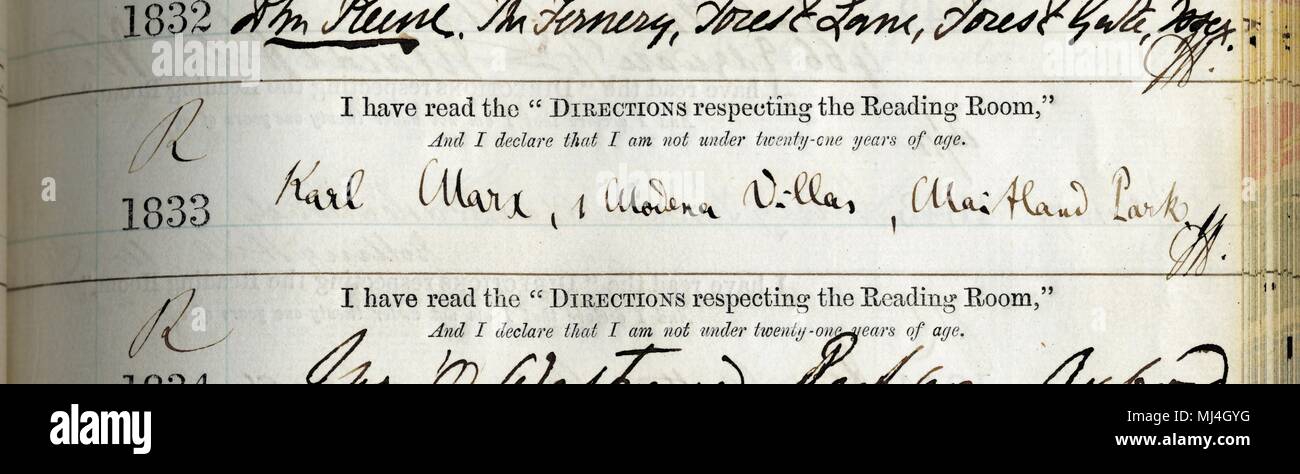 1832 John Keene. The Fernery, Forest Lane, Forest Gate, Essex.
I have read the “ DIRECTIONS respecting the Reading Room,”
And I declare that I am not under twenty-one years of age.
R
1833 Karl Marx, 1 Modena Villas, Maitland Park.
I have read the “ DIRECTIONS respecting the Reading Room,”
And I declare that I am not under twenty-one years of age.
R
1834
a alamy
Image ID: MJ4GYG
www.alamy.com